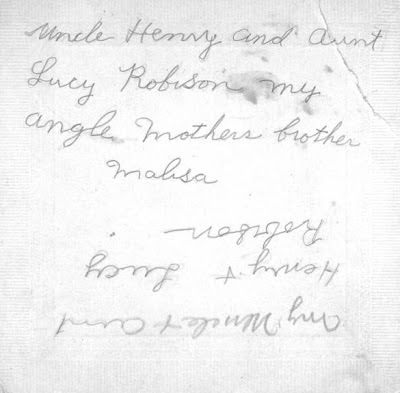 Uncle Henry and Aunt
Lucy Robison my
angle Mothers brother
Malisa
My Uncle & Aunt
Henry & Lucy
Robison